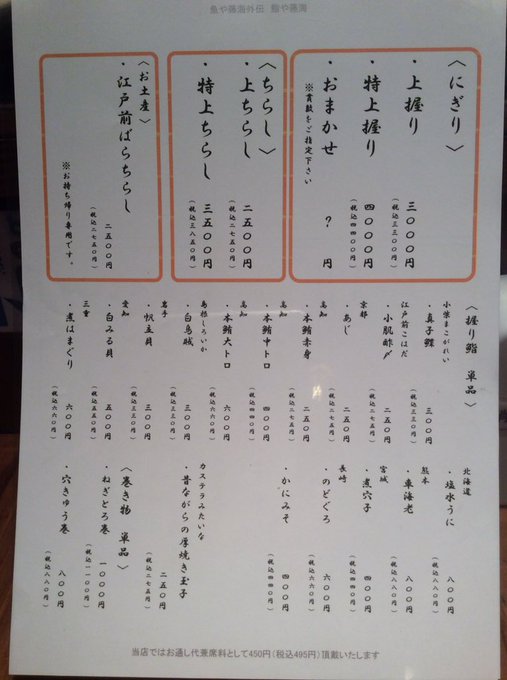 魚や藤海外伝 鮨や藤海
〈にぎり〉
・上握り 三〇〇〇円
(税込三三〇〇円)
・特上握り 四〇〇〇円
(税込四四〇〇円)
・おまかせ ? 円
※貫数をご指定下さい
〈ちらし〉
・上ちらし 二五〇〇円
(税込二七五〇円)
・特上ちらし 三五〇〇円
(税込三八五〇円)
〈お土産〉
・江戸前ばらちらし 二五〇〇円
(税込二七五〇円)
※お持ち帰り専用です。
〈握り鮨 単品〉
小柴まこがれい
・真子鰈 三〇〇円
(税込三三〇円)
江戸前こはだ
・小肌酢〆 二五〇円
(税込二七五円)
京都
・あじ 二五〇円
(税込二七五円)
高知
・本鮪赤身 二五〇円
(税込二七五円)
高知
・本鮪中トロ 四〇〇円
(税込四四〇円)
高知
・本鮪大トロ 六〇〇円
(税込六六〇円)
島根しろいか
・白烏賊 三〇〇円
(税込三三〇円)
岩手
・帆立貝 三〇〇円
(税込三三〇円)
愛知
・白みる貝 五〇〇円
(税込五五〇円)
三重
・煮はまぐり 六〇〇円
(税込六六〇円)
北海道
・塩水うに 八〇〇円
(税込八八〇円)
熊本
・車海老 八〇〇円
(税込八八〇円)
宮城
・煮穴子 四〇〇円
(税込四四〇円)
長崎
・のどぐろ 六〇〇円
(税込六六〇円)
・かにみそ 四〇〇円
(税込四四〇円)
カステラみたいな
・昔ながらの厚焼き玉子 二五〇円
(税込二七五円)
〈巻き物 単品〉
・ねぎとろ巻 一〇〇〇円
(税込一一〇〇円)
・穴きゅう巻 八〇〇円
(税込八八〇円)
当店ではお通し代兼席料として450円(税込495円)頂戴いたします